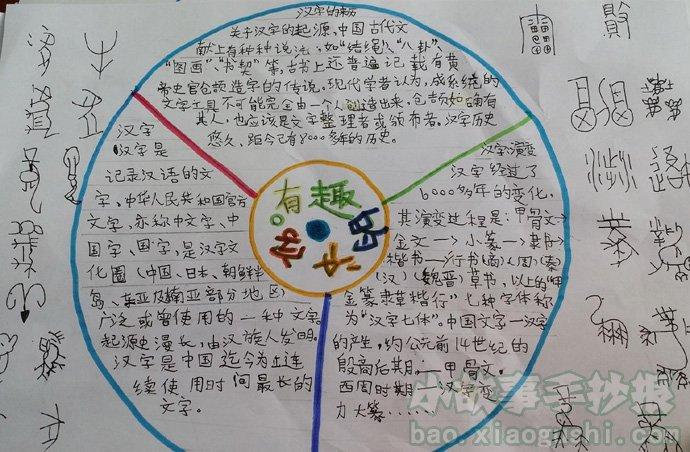 汉字的来历
关于汉字的起源,中国古代文
献上有种种说法,如"结绳"、"八卦"、
"图画"、"书契"等,古书上还普遍记载有黄
帝史官仓颉造字的传说。现代学者认为,成系统的
文字工具不可能完全由一个人创造出来,仓颉如确有
其人,也应该是文字整理者或颁布者。汉字历史
悠久,距今已有8000多年的历史。
汉字
汉字是
记录汉语的文
字,中华人民共和国官方
文字,亦称中文字、中
国字、国字,是汉字文
化圈(中国、日本、朝鲜半
岛、东亚及东南亚部分地区)
广泛或曾使用的一种文字。
起源史漫长,由汉族人发明。
汉字是中国迄今为止连
续使用时间最长的
文字。
汉字演变
汉字经过了
6000多年的变化,
其演变过程是:甲骨文→
金文→小篆→隶书→
楷书→行书(商)(周)(秦)
(汉)(魏晋)草书,以上的"甲
金篆隶草楷行"七种字体称
为"汉字七体"。中国文字—汉字
的产生,约公元前14世纪的
殷商后期,—甲骨文。
西周时期
力大篆……
有趣
的
汉
字
小故事手抄报
bao.xiaogushi.com